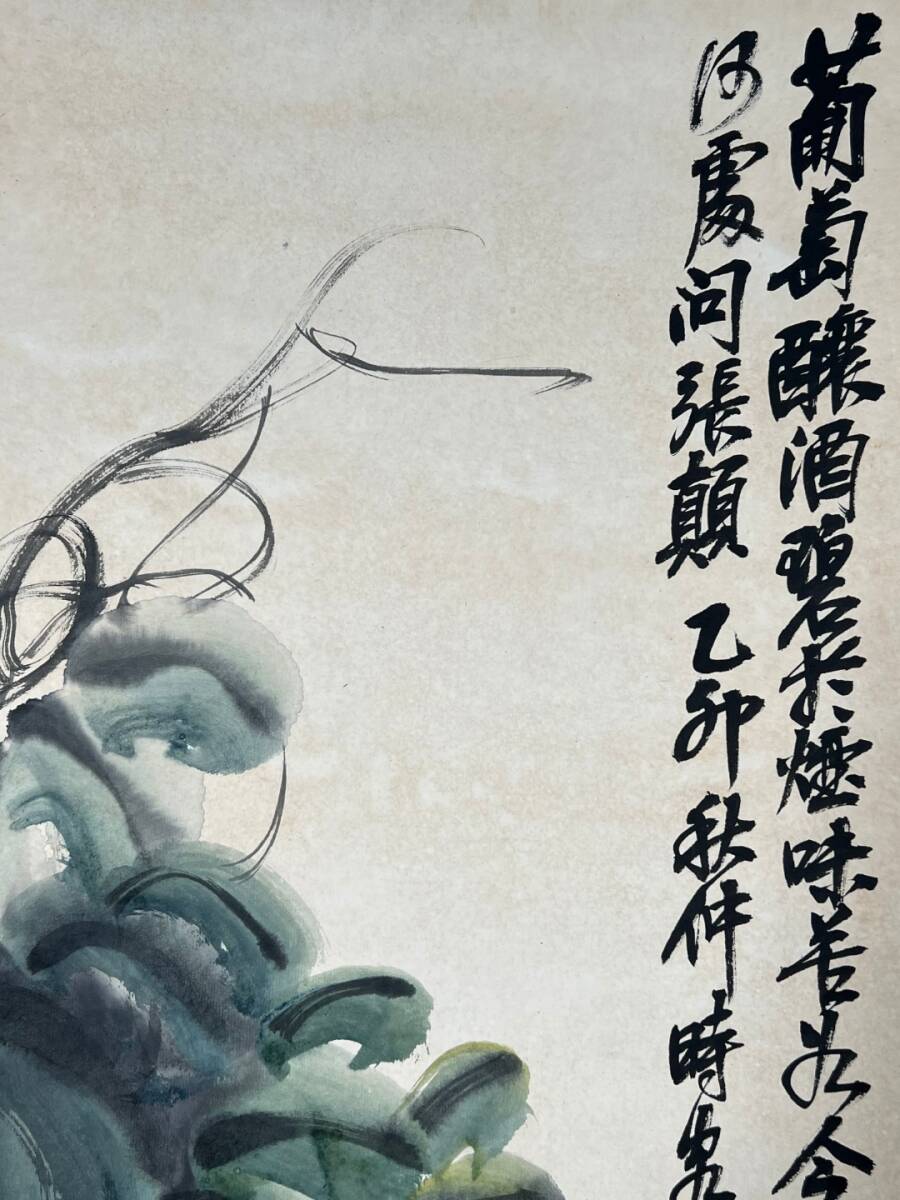 葡萄釀酒碧於煙味苦如今
何處問張顛 乙卯秋仲時客